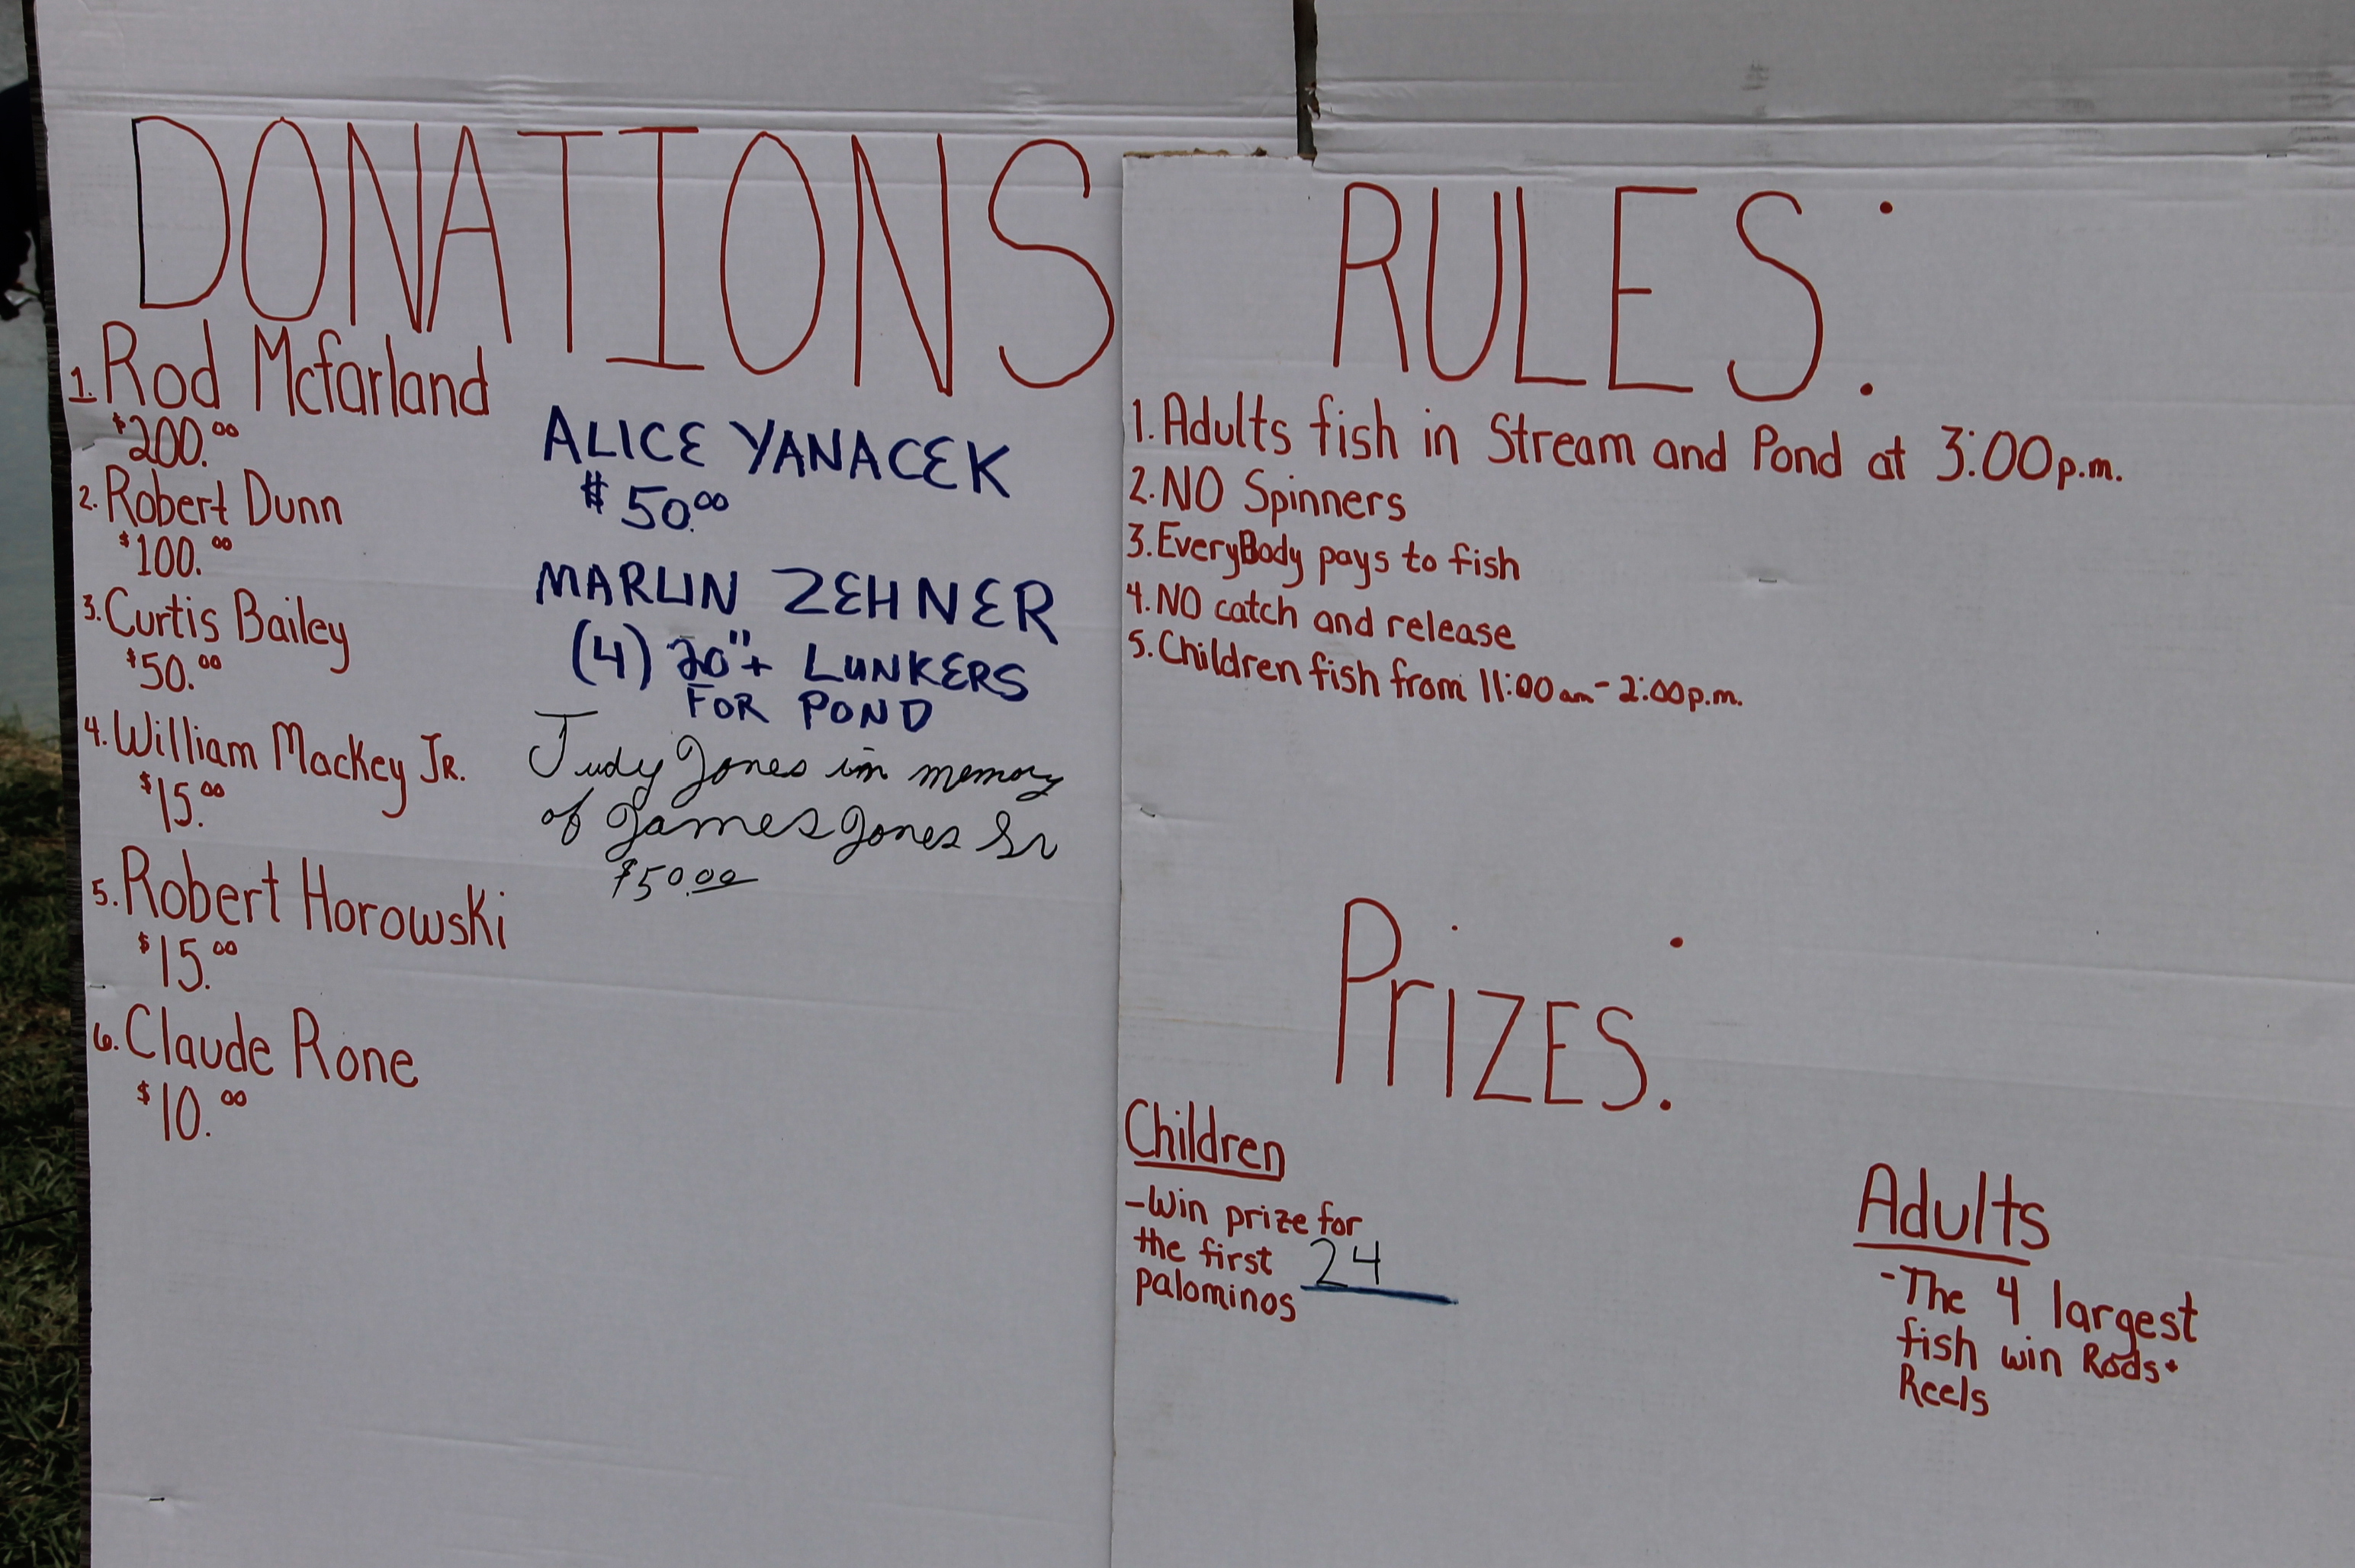 DONATIONS
1. Rod Mcfarland
$200.00
2. Robert Dunn
$100.00
3. Curtis Bailey
$50.00
4. William Mackey JR.
$15.00
5. Robert Horowski
$15.00
6. Claude Rone
$10.00
ALICE YANACEK
$50.00
MARLIN ZEHNER
(4) 20"+ LUNKERS
FOR POND
Judy Jones in memory
of James Jones Sr
$50.00
RULES:
1. Adults fish in Stream and Pond at 3:00 p.m.
2. NO Spinners
3. EveryBody pays to fish
4. NO catch and release
5. Children fish from 11:00 am - 2:00 p.m.
PriZES:
Children
- Win prize for
the first 24
palominos
Adults
- The 4 largest
fish win Rods +
Reels